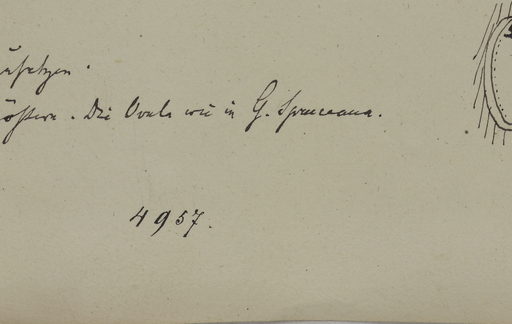 usetzen.
östern. Die Ovula wie in G. Spruceana.
4957.